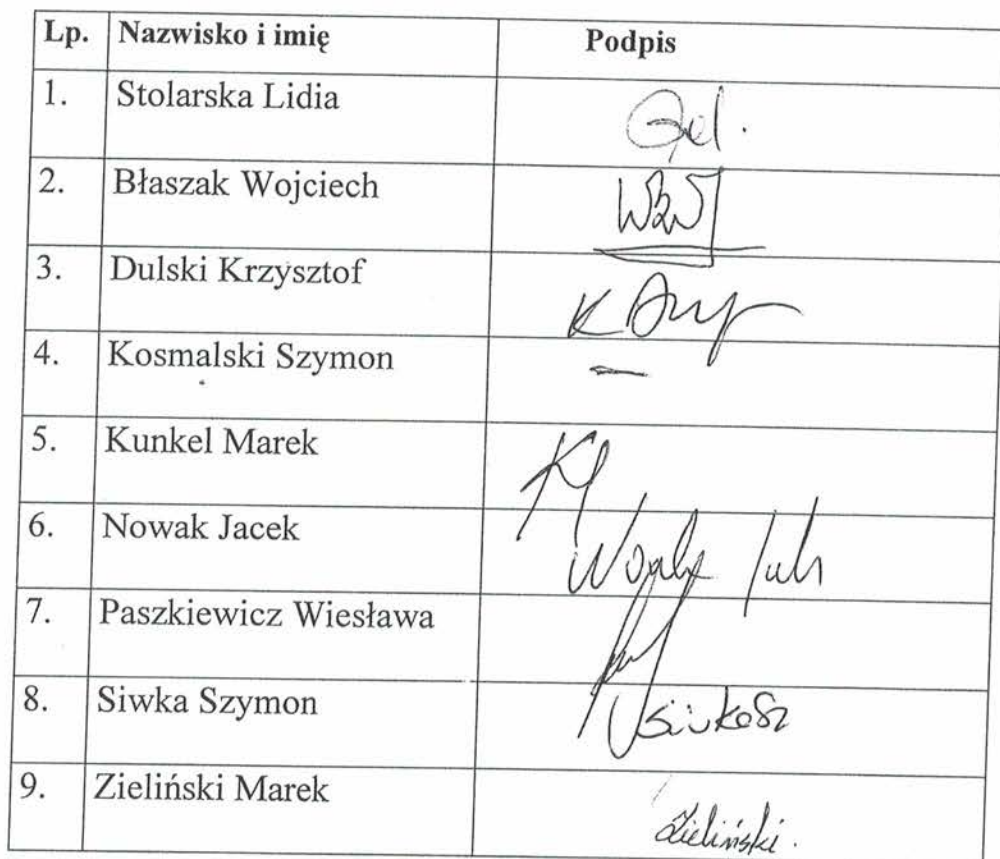 Lp. Nazwisko i imię Podpis
1. Stolarska Lidia
2. Błaszak Wojciech
3. Dulski Krzysztof K
4. Kosmalski Szymon —
5. Kunkel Marek
6. Nowak Jacek
7. Paszkiewicz Wiesława
8. Siwka Szymon
9. Zieliński Marek Zieliński.